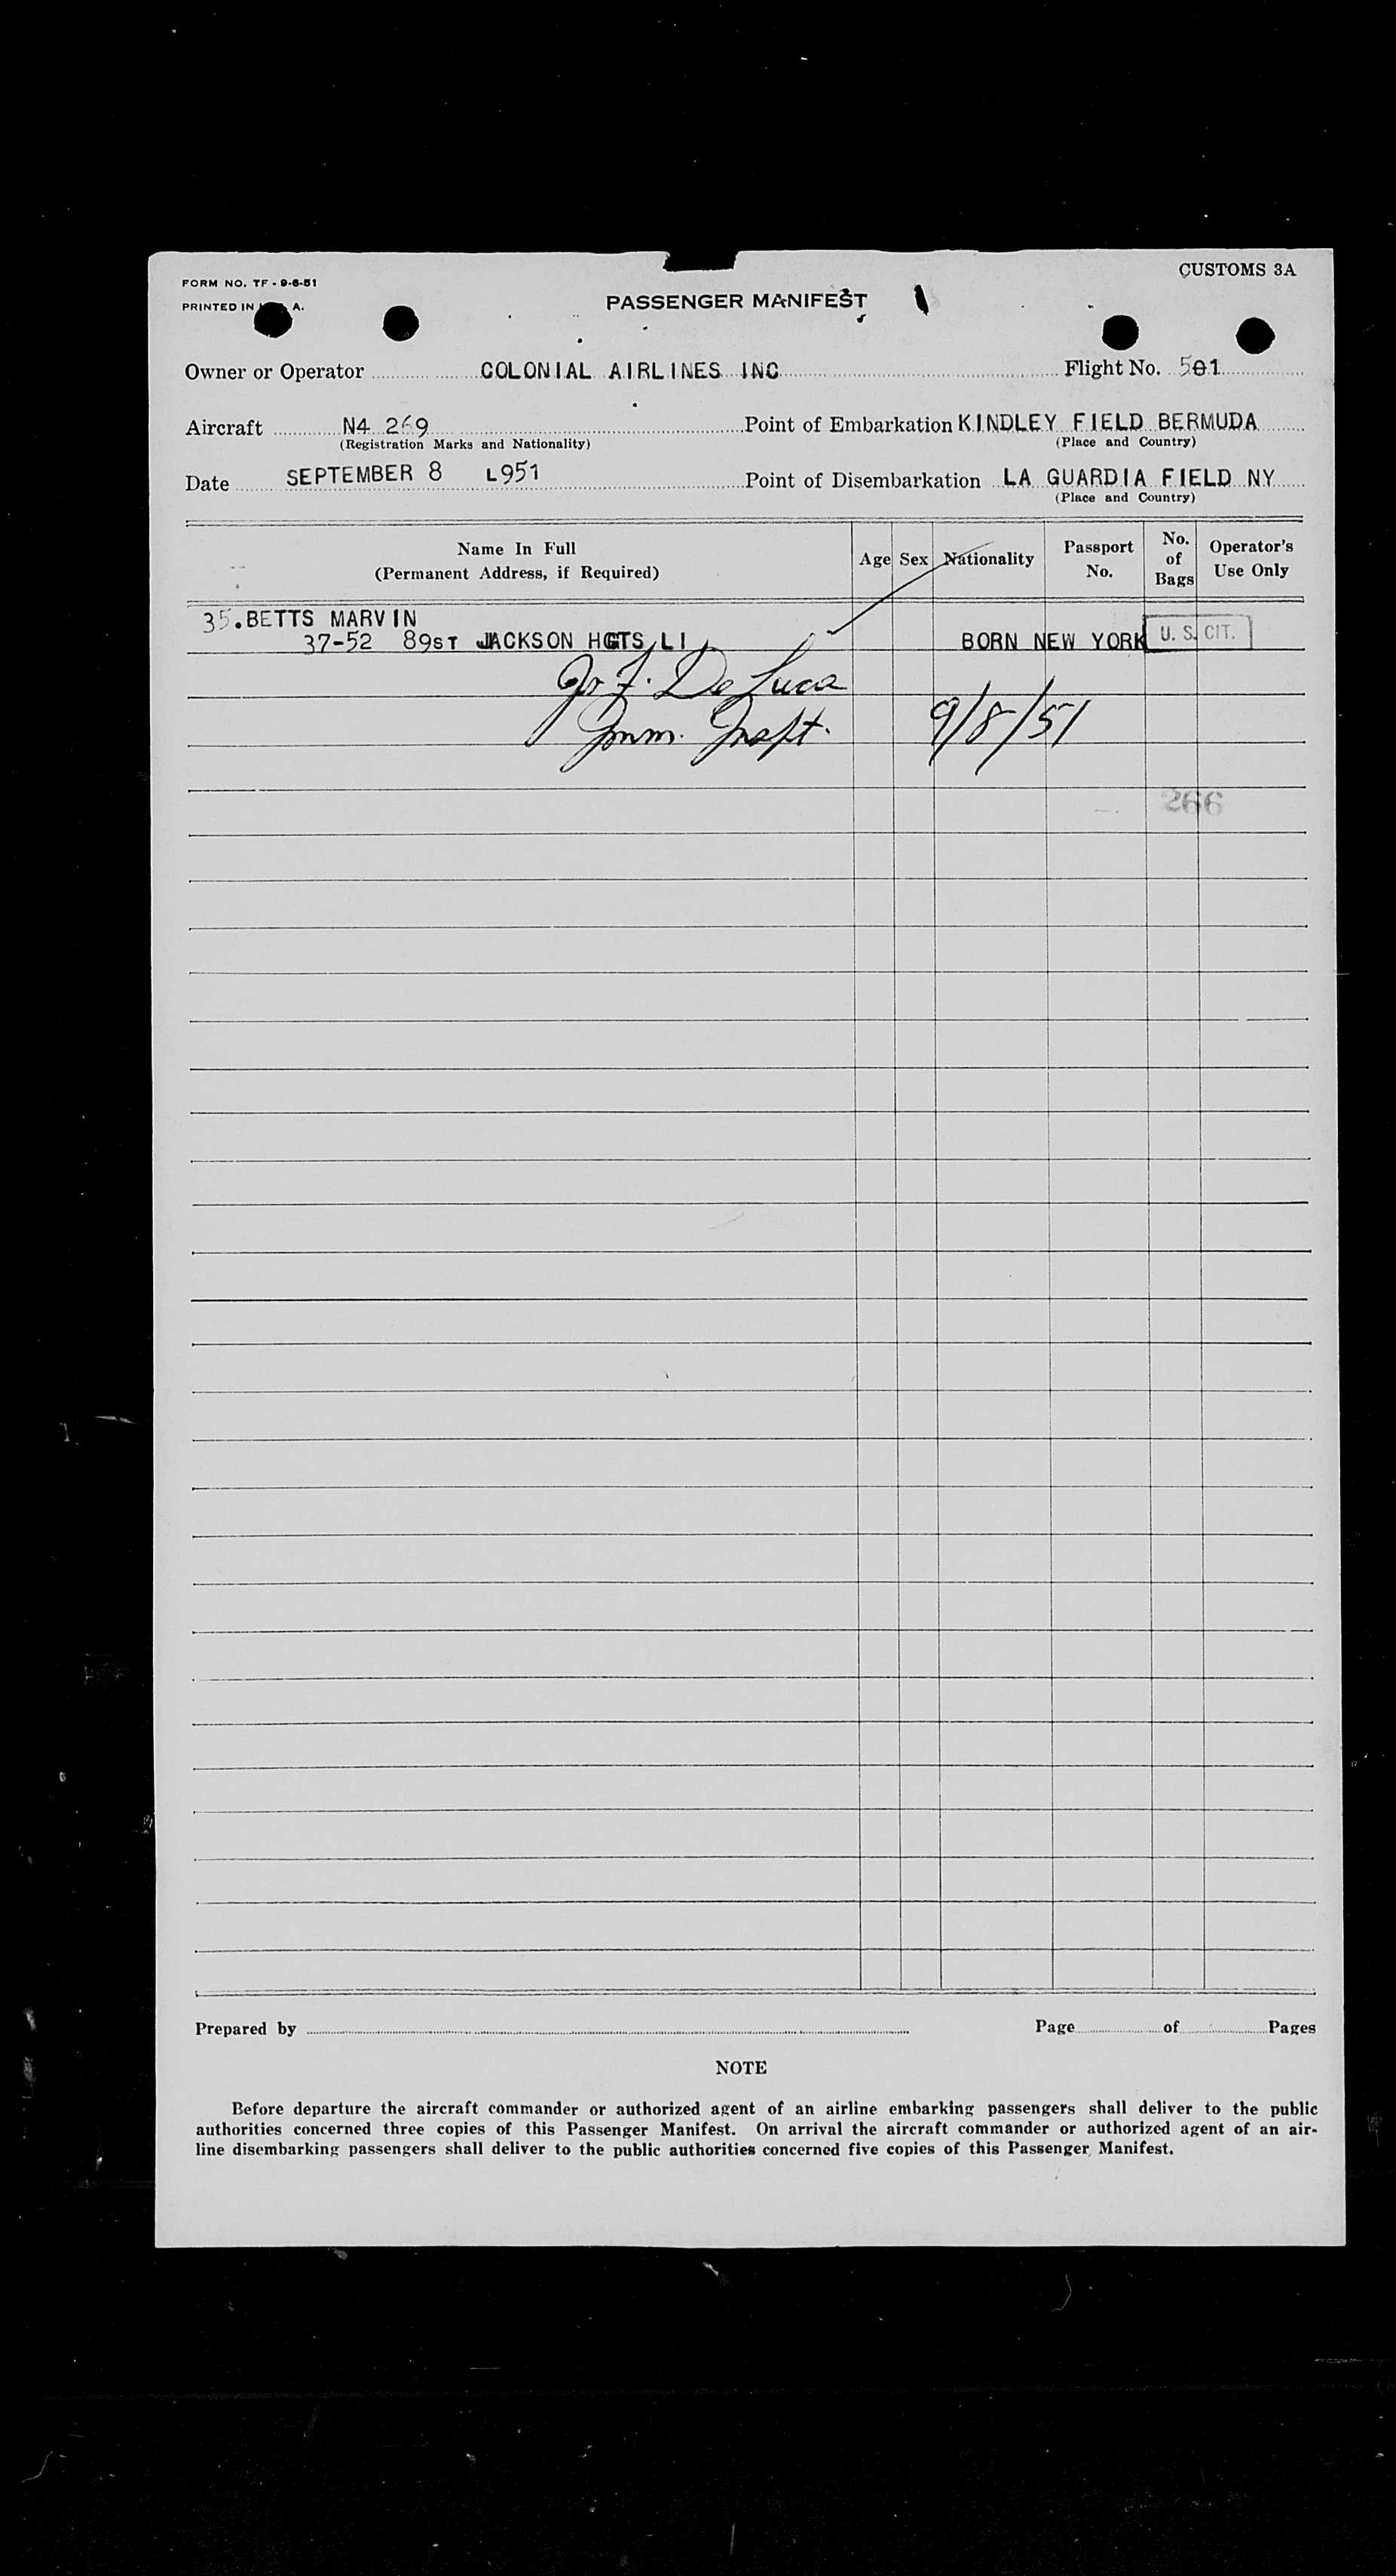 FORM NO. TF - 9-6-51
CUSTOMS 3A
PRINTED IN A.
PASSENGER MANIFEST
Owner or Operator COLONIAL AIRLINES INC Flight No. 501
Aircraft N4 269 Point of Embarkation KINDLEY FIELD BERMUDA
(Registration Marks and Nationality) (Place and Country)
Date SEPTEMBER 8 L951 Point of Disembarkation LA GUARDIA FIELD NY
(Place and Country)
Name In Full
(Permanent Address, if Required)
Age Sex Nationality
Passport
No.
No.
of
Bags
Operator's
Use Only
35. BETTS MARVIN
37-52 89ST JACKSON HGTS LI BORN NEW YORK U. S. CIT.
F. De Luca
Imm. Inspt. 9/8/51
266
Prepared by Page of Pages
NOTE
Before departure the aircraft commander or authorized agent of an airline embarking passengers shall deliver to the public
authorities concerned three copies of this Passenger Manifest. On arrival the aircraft commander or authorized agent of an air-
line disembarking passengers shall deliver to the public authorities concerned five copies of this Passenger Manifest.